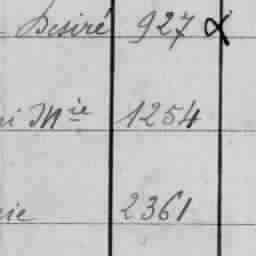 Désiré 927 α
Mie 1254
2361